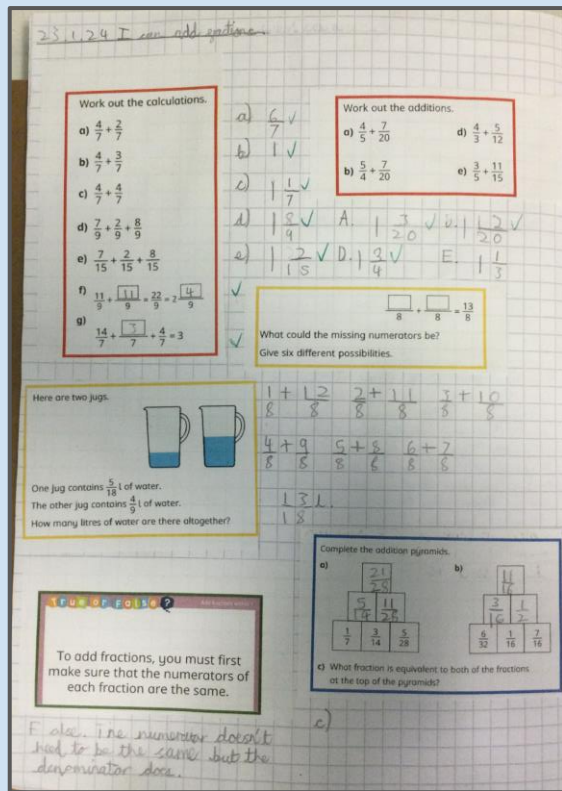 23.1.24 I can add fractions.
Work out the calculations.
a) 4/7 + 2/7
b) 4/7 + 3/7
c) 4/7 + 4/7
d) 7/9 + 2/9 + 8/9
e) 7/15 + 2/15 + 8/15
f) 11/9 + 11/9 = 22/9 = 2 4/9
g) 14/7 + 3/7 + 4/7 = 3
a) 6/7 ✓
b) 1 ✓
c) 1 1/7 ✓
d) 1 8/9 ✓
e) 1 2/15 ✓
Work out the additions.
a) 4/5 + 7/20 d) 4/3 + 5/12
b) 5/4 + 7/20 e) 3/5 + 11/15
A. 1 3/20 ✓ 1 12/20 ✓
D. 1 3/4 ✓ E. 1 1/3
□/8 + □/8 = 13/8
What could the missing numerators be?
Give six different possibilities.
1/8 + 12/8 2/8 + 11/8 3/8 + 10/8
4/8 + 9/8 5/8 + 8/8 6/8 + 7/8
Here are two jugs.
One jug contains 5/18 l of water.
The other jug contains 4/9 l of water.
How many litres of water are there altogether?
13/18 L.
Complete the addition pyramids.
a) b)
21/28 11/16
5/14 11/28 3/16 1/2
1/7 3/14 5/28 6/32 1/16 7/16
c) What fraction is equivalent to both of the fractions
at the top of the pyramids?
c)
True or False?
To add fractions, you must first
make sure that the numerators of
each fraction are the same.
False. The numerator doesn't
need to be the same but the
denominator does.